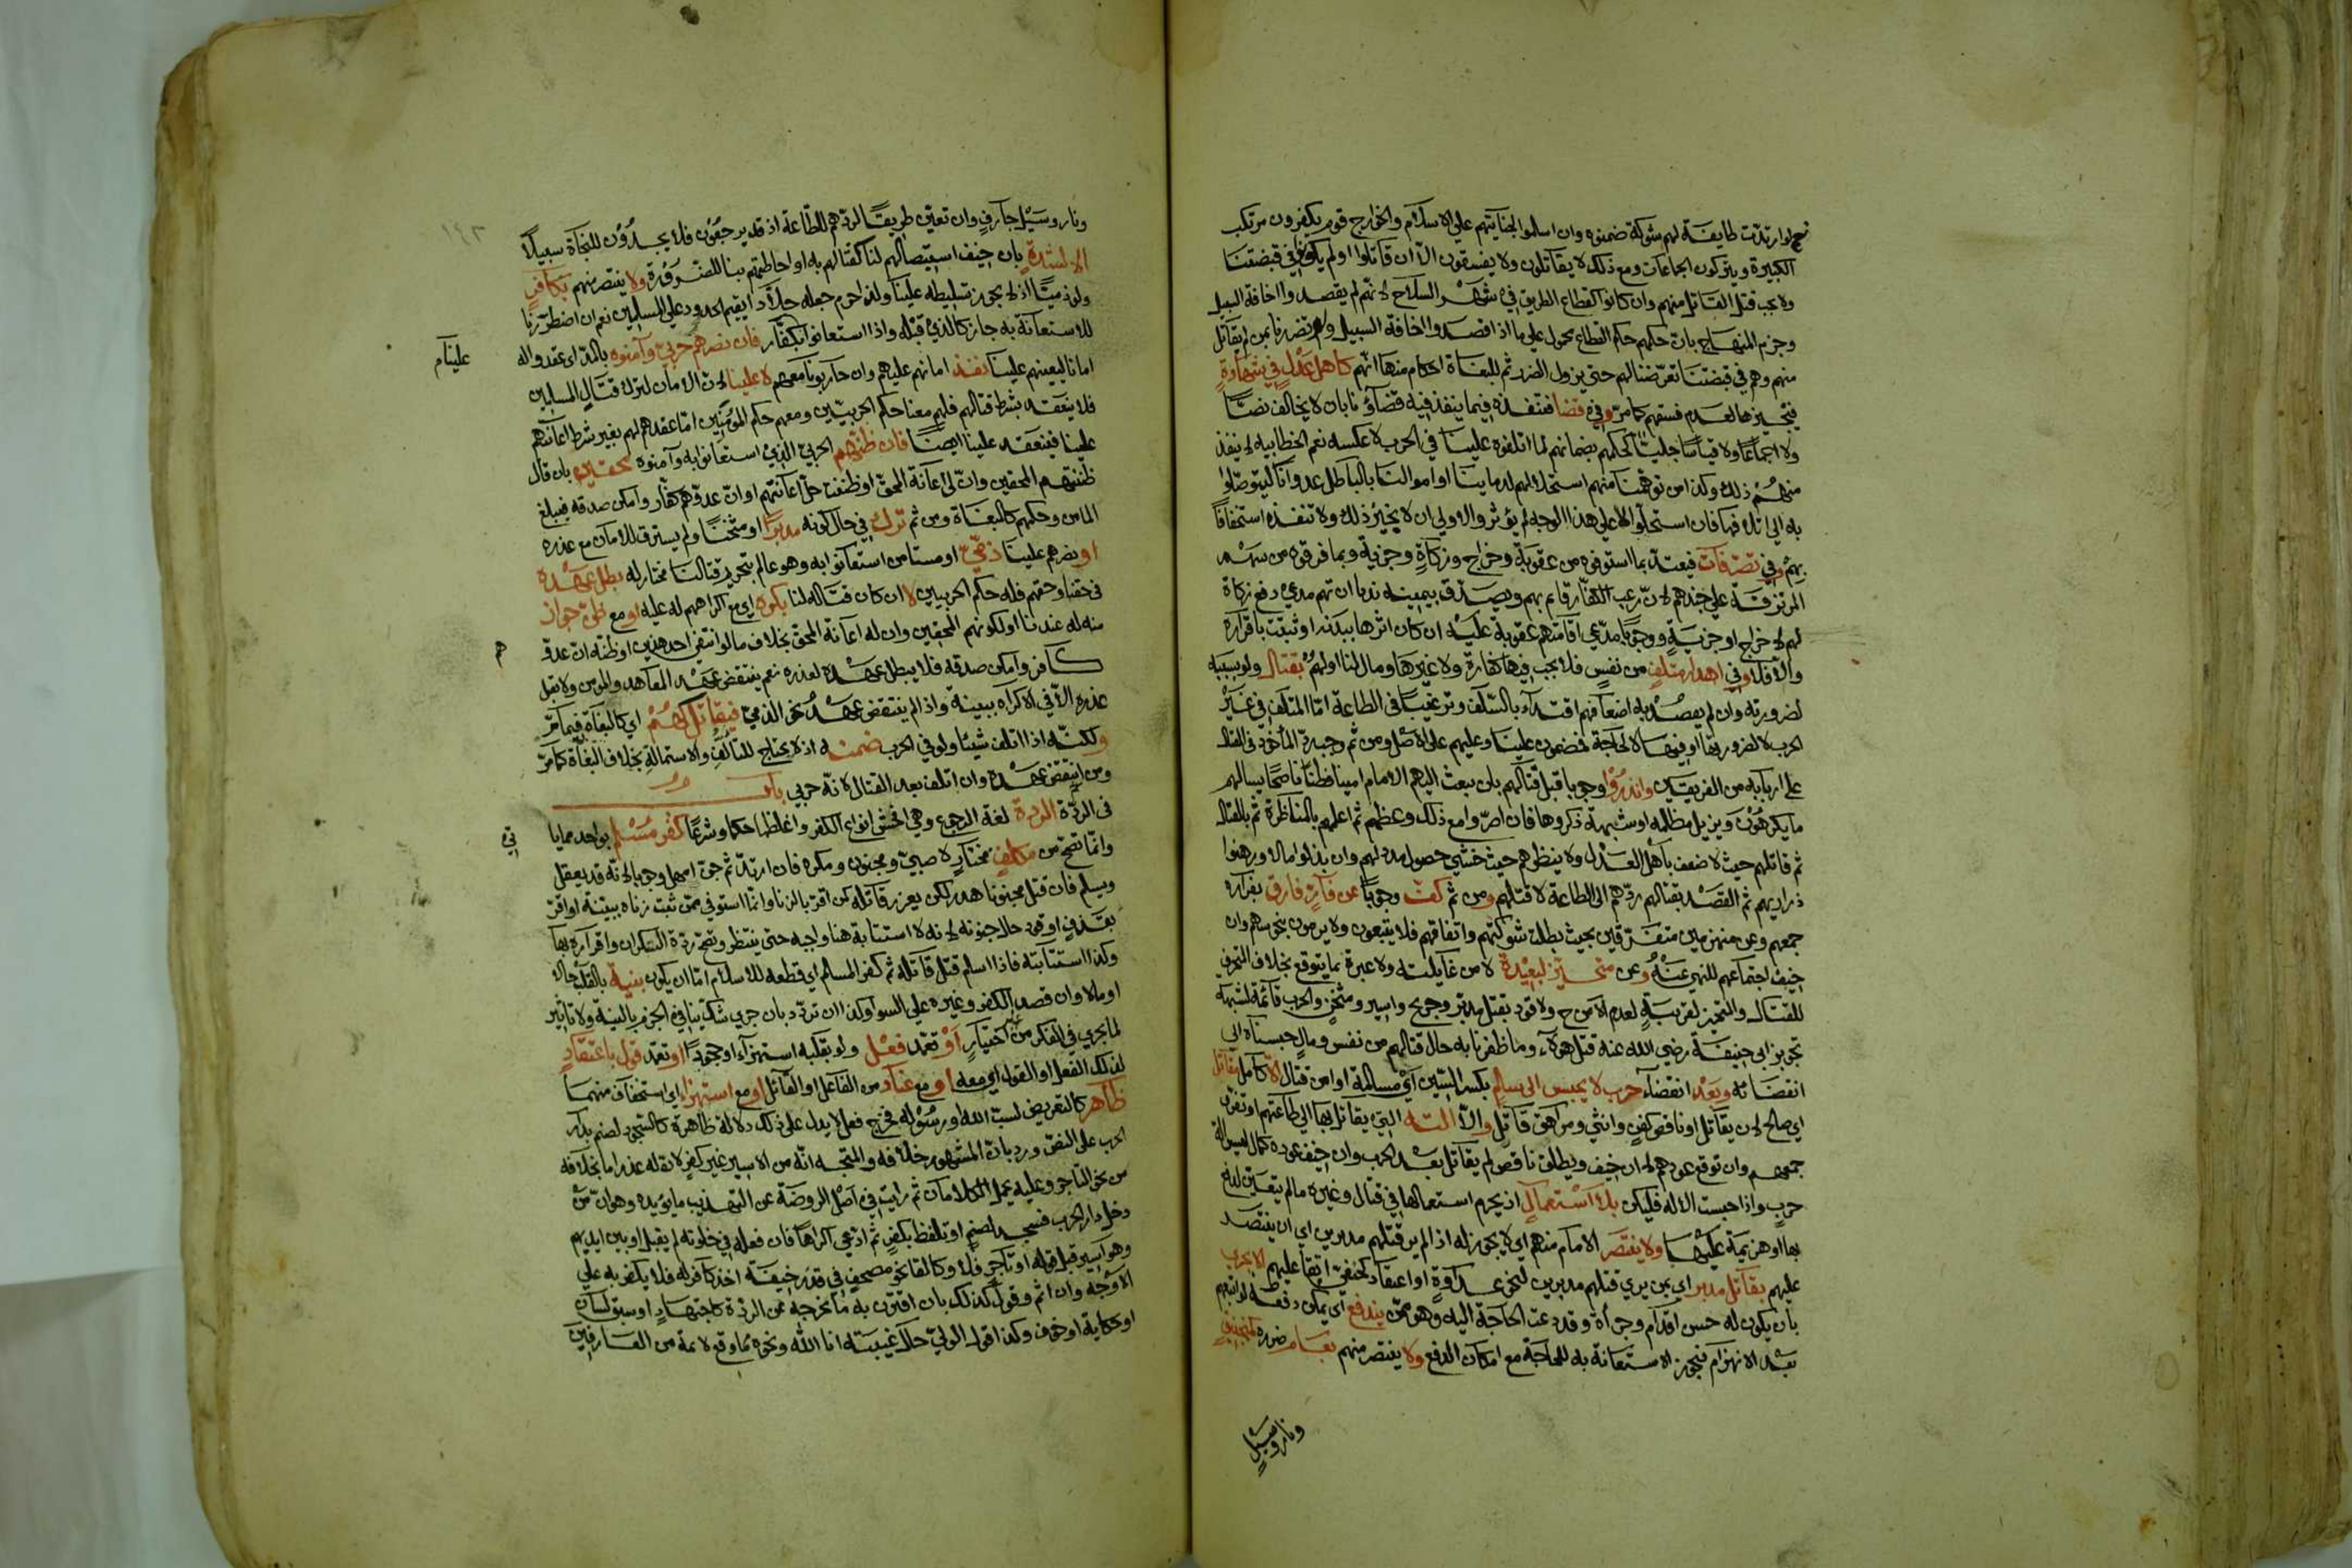 نعم لو ارتدت طايفة لهم شوكة ضمنوه وان اسلموا لجنايتهم على الاسلام والخوارج قوم يكفرون مرتكب
الكبيرة ويتركون الجماعات ومع ذلك لا يقاتلون ولا يفسقون الا ان قاتلوا او لم يكونوا في قبضتنا
ولا يجب قتل القاتل منهم وان كانوا كقطاع الطريق في شهر السلاح لانهم لم يقصدوا اخافة السبيل
وجزم المنهاج بان حكمهم حكم القطاع محمول على ما اذا قصدوا اخافة السبيل ولو تضررنا بمن لم يقاتل
منهم وهم في قبضتنا تعرضنا لهم حتى يزول الضرر ثم للبغاة احكام منها انهم كاهل عدل في شهادة
فتجيزها لعدم فسقهم كما مر وفي قضا فننفذه فيما ينفذ فيه قضاؤنا بان لا يخالف نصا
ولا اجماعا ولا قياسا جليا كحكمهم بضمانهم لما اتلفوه علينا في الحرب لا عكسه نعم الخطابيه لا ينفذ
منهم ذلك وكذا من توهمنا منهم استحلالهم لدماينا او اموالنا بالباطل عدوانا ليتوصلوا
به الى اتلافها فان استحلوا لا على هذا الوجه لم يؤثر والاولى ان لا نجيز ذلك ولا ننفذه استخفافا
بهم وفي تصرفات فيعتد بما استوفوه من عقوبة وخراج وزكاة وجزية وبما فرقوه من سهم
المرتزقة على جندهم لان رعب الكفار قايم بهم ويصدق بيمينه ندبا ان تهم مدعي دفع زكاة
لهم لا خراج او جزية ووجوبا مدعي اقامتهم عقوبة عليه ان كان اثرها ببدنه او ثبتت باقراره
والا فلا وفي اهدار متلف من نفس فلا يجب فيها كفارة ولا غيرها ومال لنا او لهم بقتال ولو بسببه
لضرورته وان لم يقصد به اضعافهم اقتداء بالسلف وترغيبا في الطاعة اما المتلف في غير
الحرب لا لضرورتها او فيها لا لحاجة فمضمون علينا وعليهم على الاصل ومن ثم وجب رد الماخوذ في القتال
على اربابه من الفريقين وانذروا وجوبا قبل قتالهم بان يبعث اليهم الامام امينا فطنا ناصحا يسالهم
ما يكرهون ويزيل مظلمه او شبهة ذكروها فان اصروا مع ذلك وعظهم ثم اعلمهم بالمناظرة ثم بالقتال
ثم قاتلهم حيث لا ضعف باهل العدل ولا ينظرهم حيث خشي حصول مدد لهم وان بذلوا مالا ورهنوا
ذراريهم ثم القصد بقتالهم ردهم الى الطاعة لا قتلهم ومن ثم كف وجوبا عن فار فارق بفراره
جمعهم وعن منهزمين متفرقين بحيث بطلت شوكتهم واتفاقهم فلا يتبعون ولا يرمون بنحو سهم وان
خيف اجتماعهم للنهي عنه وعن متحيز لبعيدة لا من غايلته ولا عبرة بما يتوقع بخلاف التحرف
للقتال والتحيز لقريبة لعدم الامن ح ولا قود بقتل مدبر وجريح واسير ومثخن والحرب قائمة لشبهة
تجويز ابي حنيفة رضي الله عنه قتل هؤلاء وما ظفرنا به حال قتالهم من نفس ومال حبسناه الى
انقضائه وبعد انقضاء حرب لا يحبس الى سلم بكسر السين اي مسالمة او امن قتال الا كامل يقاتل
اي صالح لان يقاتل او ناقص كفن وانثى ومراهق قاتل والا الته التي يقاتل بها الى طاعتهم او تفرق
جمعهم وان توقع عودهم لا ان خيف ويطلق ناقص لم يقاتل بعد الحرب وان خيف عوده كمال ليس الة
حرب واذا حبست الالة فليكن بلا استعمال اذ يحرم استعمالها في قتال وغيره ما لم يتعين لدفع
بها او هزيمة عليها ولا ينتصر الامام منهم اي لا يجوز له اذا لم ير قتلهم مدبرين اي ان ينتصر
عليهم بقاتل مدبر اي بمن يرى قتلهم مدبرين لنحو عداوة او اعتقاد كحنفي ابقا عليهم الا بجري
بان يكون له حسن اقدام وجراة وقد دعت الحاجة اليه وهو ممن يندفع اي يمكن دفعه لو اتبعهم
بعد الانهزام فيجوز الاستعانة به للحاجة مع امكان الدفع ولا ينتصر منهم بعام ضرره كمنجنيق
ونار وسيل
ونار وسيل جارف وان تعين طريقا لردهم للطاعة اذ قد يرجعون فلا يجدون للنجاة سبيلا
الا لشدة بان خيف استيصالهم لنا كقتالهم به او احاطتهم بنا للضرورة ولا ينتصر منهم بكافر
ولو ذميا اذ لا يجوز تسليطه علينا ولذا حرم جعله جلادا يقيم الحدود على المسلمين نعم ان اضطررنا
للاستعانة به جاز كالذي قبله واذا استعانوا بكفار فان نصرهم حربي وآمنوه بالمد اي عقدوا له
علينا م
امانا ليعينهم علينا نفذ امانهم عليهم وان حاربونا معهم لا علينا لان الامان لترك قتال المسلمين
فلا ينعقد بشرط قتالهم فلهم معنا حكم الحربيين ومعهم حكم المؤمنين اما عقدهم لهم بغير شرط اعانتهم
علينا فينعقد علينا ايضا فان ظنهم الحربي الذي استعانوا به وآمنوه محقين بان قال
ظننتهم المحقين وان لي اعانة المحق او ظننت حل اعانتهم او ان عدوهم كفار وامكن صدقه فيبلغ
المامن وحكمهم كالبغاة ومن ثم ترك في حال كونه مدبرا او مثخنا ولم يسترق للامان مع عذره
او نصرهم علينا ذمي او مستامن استعانوا به وهو عالم بتحريم قتالنا مختار له بطل عهده
في حقنا وحقهم فله حكم الحربيين لا ان كان قتاله لنا بكره اي مع اكراههم له عليه او مع ظن جواز
منه له عندنا او لكونهم المحقين وان له اعانة المحق بخلاف ما لو انتفى احد هذين او ظنه ان عدو
هم
كافر وامكن صدقه فلا يبطل عهده لعذره نعم ينتقض عهد المعاهد والمومن ولا يقبل
عذره الا في الاكراه ببينة واذا لم ينتقض عهد نحو الذمي فيقاتل كهم اي كالبغاة فيما مر
ولكنه اذا اتلف شيئا ولو في الحرب ضمنه اذ لا يحتاج للتالف والاستمالة بخلاف البغاة كما مر
ومن انتقض عهده وان اتلف بعد القتال لانه حربي باب
في الردة الردة لغة الرجوع وهي افحش انواع الكفر واغلظها حكما وشرعا كفر مسلم بواحد مما يا
تي
وانما تصح من مكلف مختار لا صبي ومجنون ومكره فان ارتد ثم جن امهل وجوبا لانه قد يعقل
ويسلم فان قتل مجنونا هدر لكن يعزر قاتله كمن اقر بالزنا وانما استوفي ممن ثبت زناه ببينة او اقر
بقذف او قود حال جنونه لانه لا استتابة هنا واجبه حتى ينتظر وتصح ردة السكران واقراره بها
وكذا استتابته فاذا اسلم قتل قاتله ثم كفر المسلم اي قطعه للاسلام اما ان يكون بنية بالقلب حالا
او مالا وان قصد الكفر وغيره على السوا وكذا ان تردد بان جرى شك ينافي الجزم بالنية ولا تاثير
لما يجري في الفكر من غير اختيار او تعمد فعل ولو بقلبه استهزاء او جحودا او تعمد قول باعتقاد
لذلك الفعل او القول اي معه او مع عناد من الفاعل او القائل او مع استهزاء اي استخفاف منهما
ظاهر كالتعريض لسب الله او رسوله فخرج فعل لا يدل على ذلك دلالة ظاهرة كالسجود لصنم بدار
الحرب على النص ورد بان المشهور خلافه والمتجه انه من الاسير غير كفر لان له عذرا ما بخلافه
من نحو التاجر وعليه يحمل الكلامان ثم رايت في اصل الروضة عن التهذيب ما يؤيده وهو ان من
دخل دار الحرب فسجد لصنم او تلفظ بكفر ثم ادعى اكراها فان فعله في خلوته لم يقبل او بين ايديهم
وهو اسير قبل قوله او تاجر فلا وكالقا نحو مصحف في قذر خيفة اخذ كافر له فلا يكفر به على
الاوجه وان اثم وقول كذلك بان اقترن به ما يخرجه عن الردة كاجتهاد او سبق لسان
او حكاية او خوف وكذا قول الولي حال غيبته انا الله ونحوه مما وقع لائمة من العارفين
١٤٣